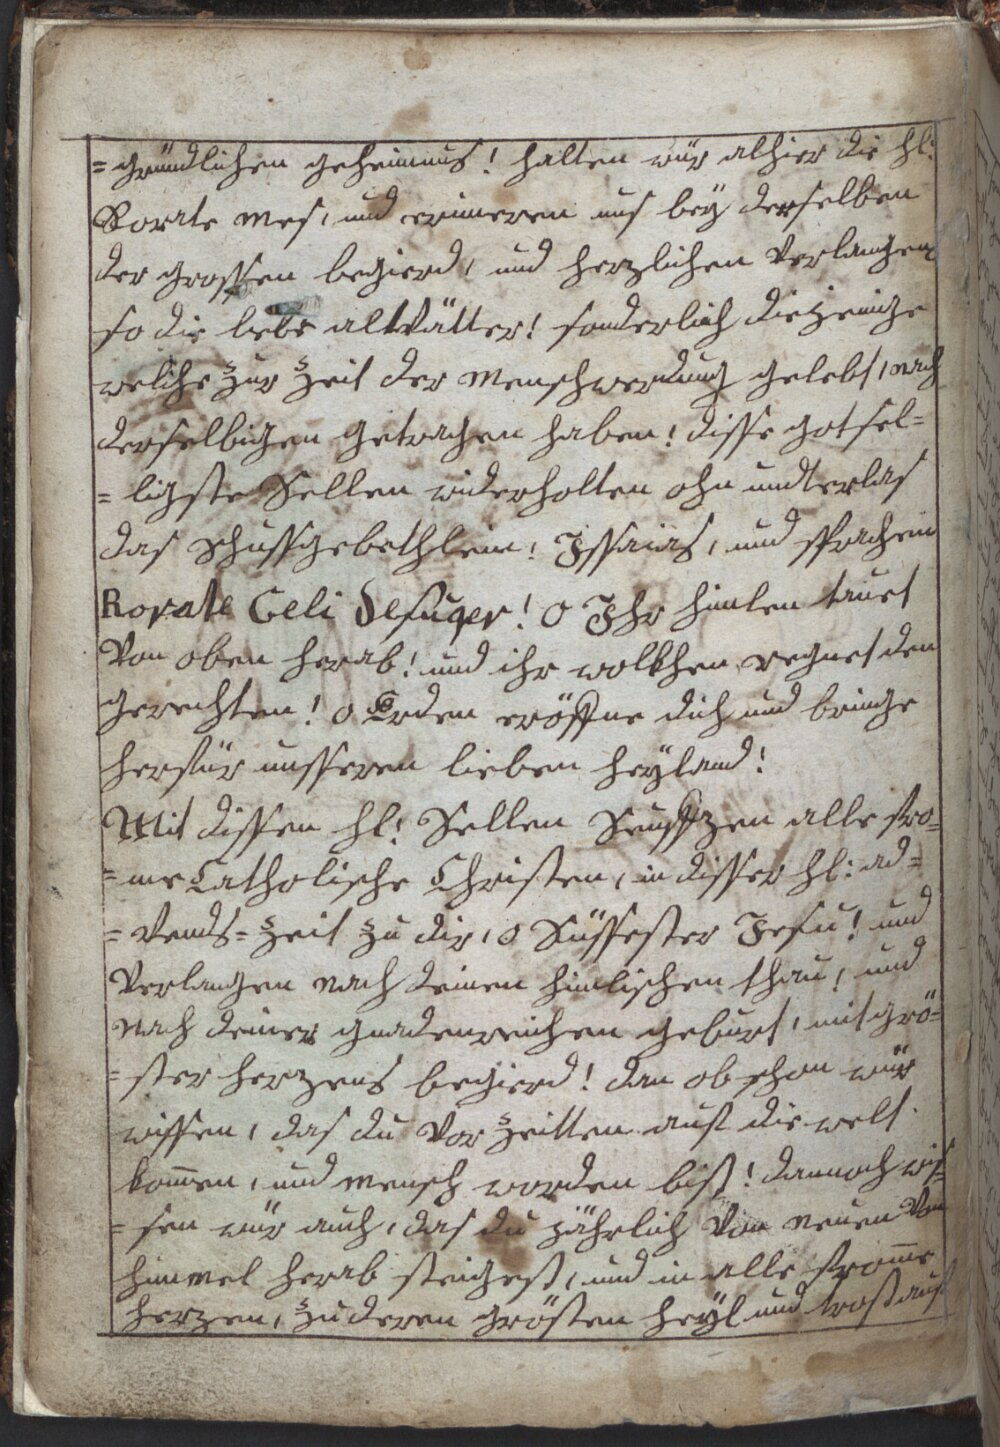 =gründlichen geheimnus! halten wür alhier die hl:
Rorate mes, und erineren uns bey derselben
der grossen begierd, und herzlichen verlangen
so die liebe altvätter! sonderlich diejenige
welche zur zeit der menschwerdung gelebt, nach
derselbigen getragen haben! disse gotsel=
=ligste Sellen widerholten ohn undterlas
das schussgebethlein, Issaias, und sprachen
Rorate Celi desuper! O Ihr himlen tauet
von oben herab! und ihr wolkhen regnet den
gerechten! o Erden eröffne dich und bringe
herfür unsseren lieben heyland!
Mit dissen hl: Sellen Seuffzen alle fro=
=me Catholische Christen, in disser hl: ad=
=vends=zeit zu dir, o Süssester Jesu! und
verlangen nach deinen himlischen thau, und
nach deiner gnadenreichen geburt, mit grö=
=ster herzens begierd! dan obschon wür
wissen, das du vor zeitten auf die welt
kom̅en, und mensch worden bist! dannoch wis=
=sen wür auch, das du jährlich von neuen vom
himmel herab steigest, und in alle from̅e
herzen, zu deren grösten heyl und trost auf